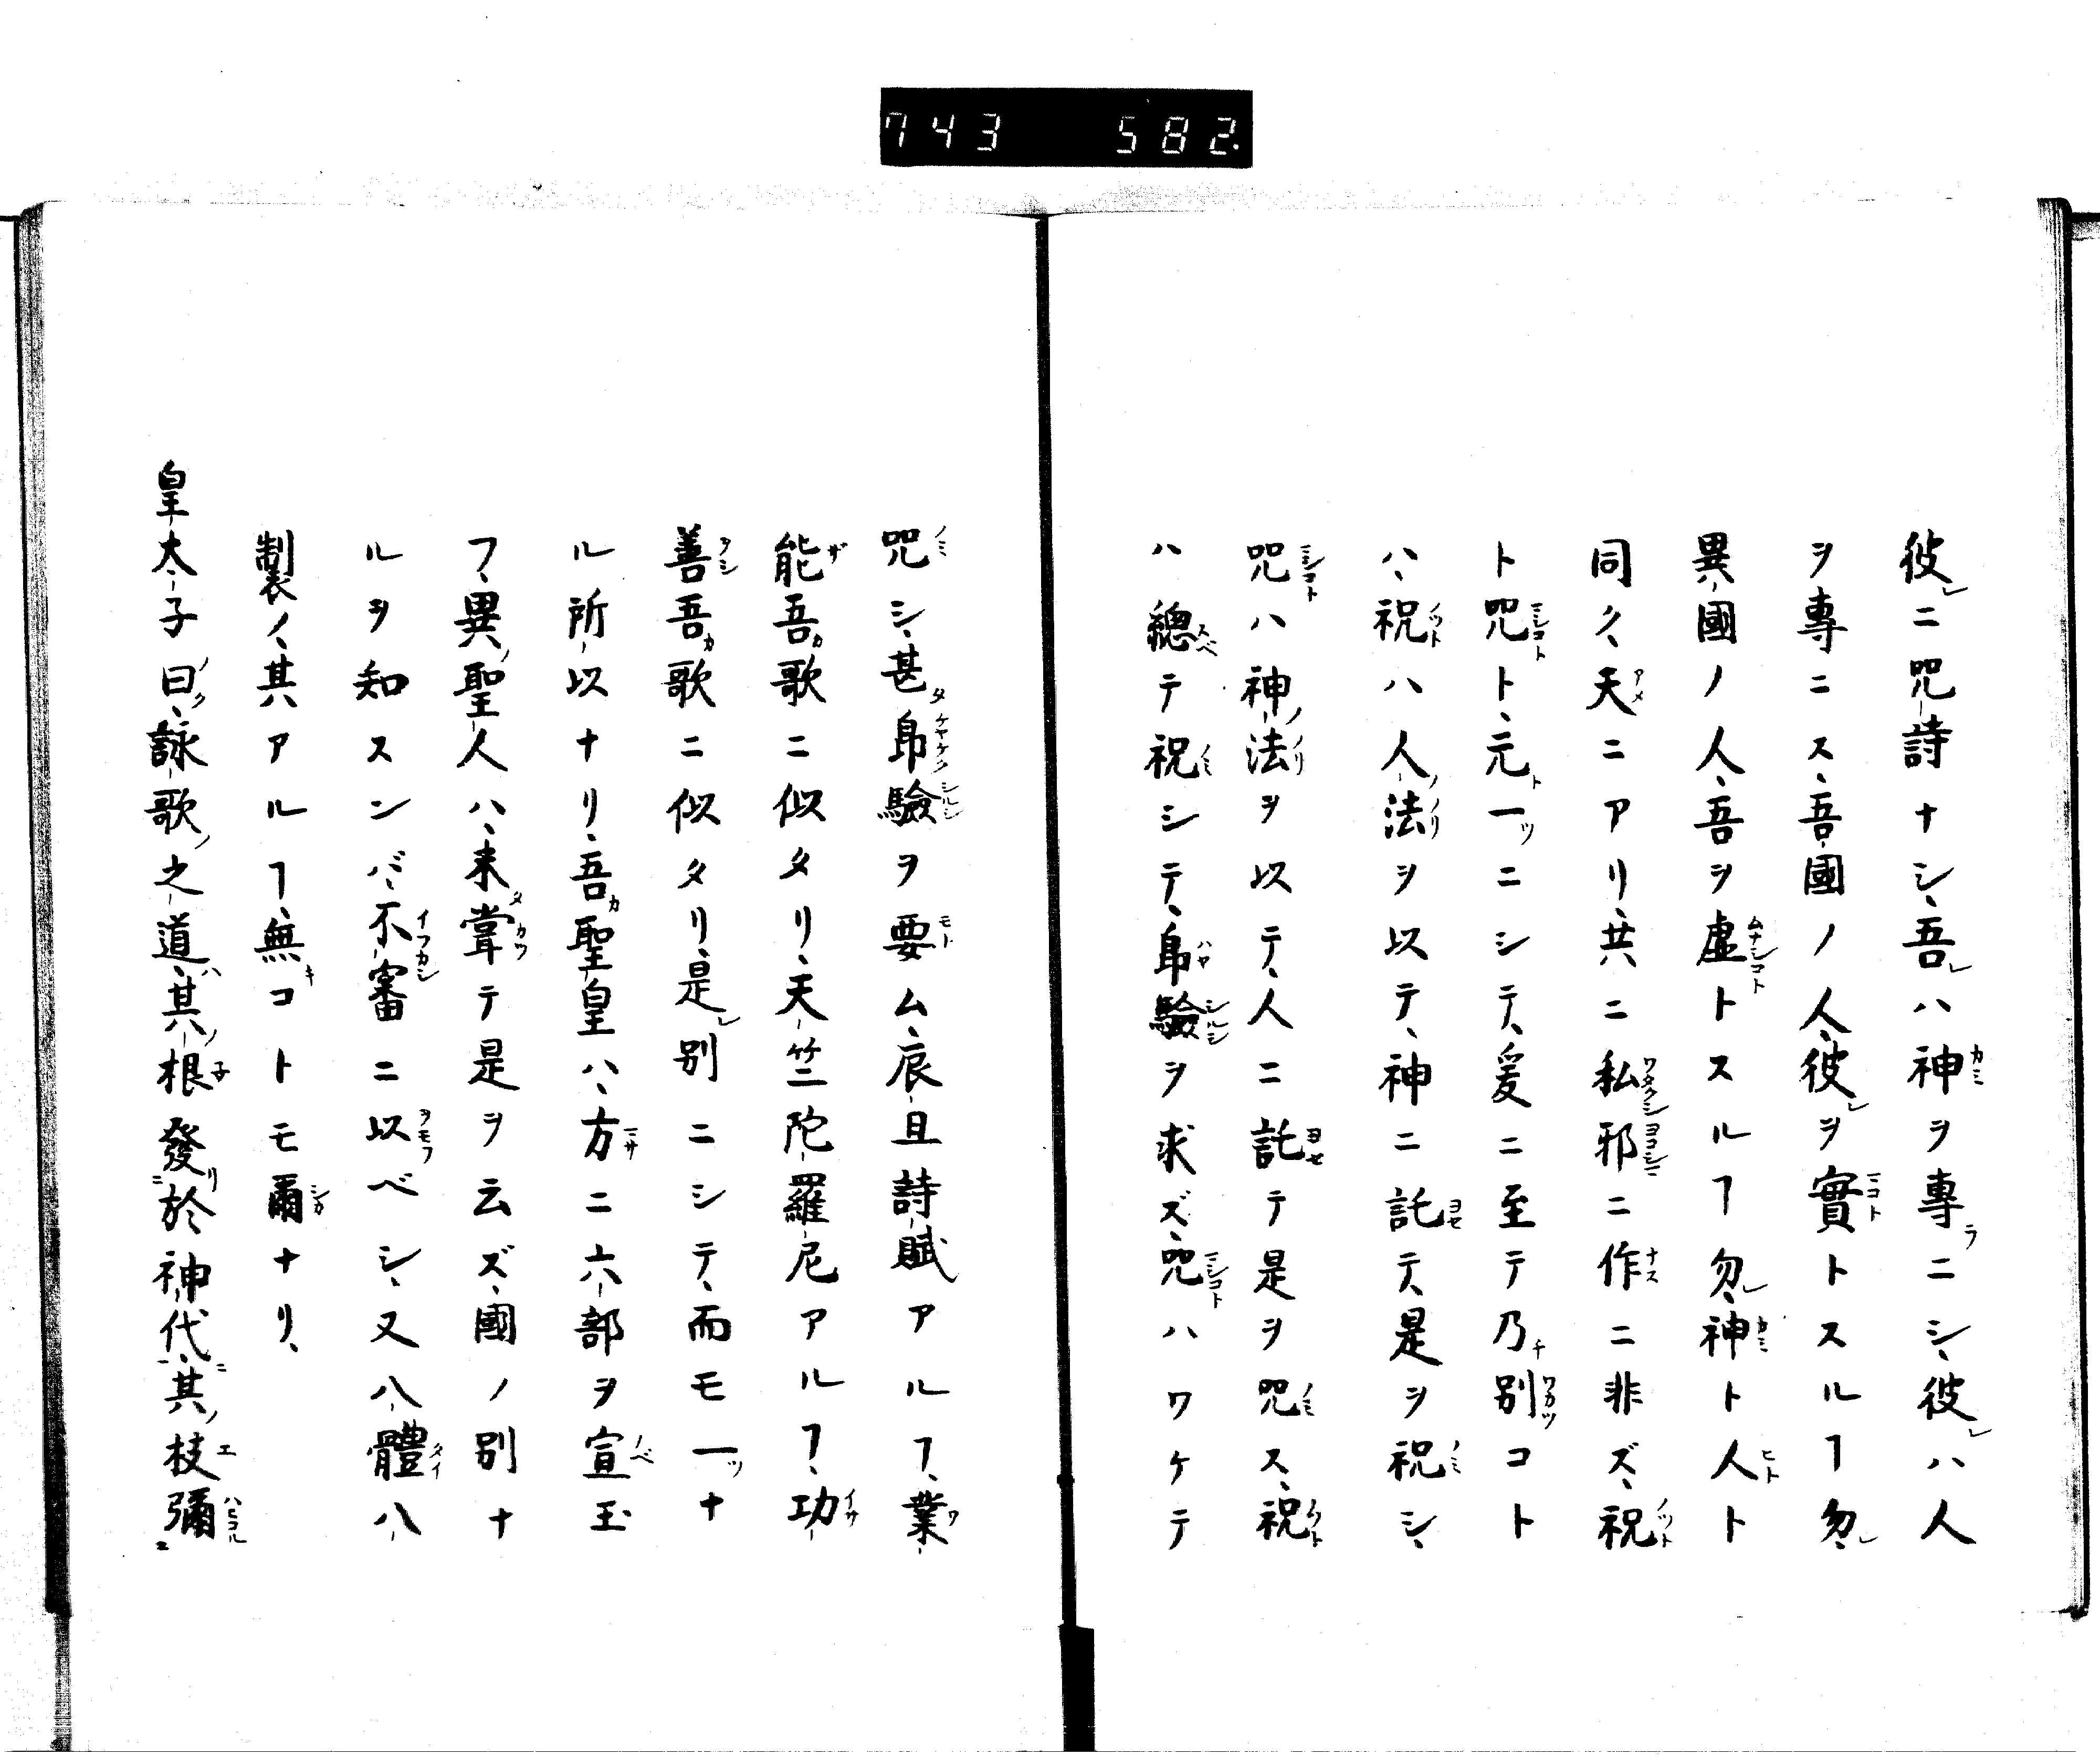 743 582
彼ニ咒詩ナシ、吾ハ神ヲ專ニシ、彼ハ人
ヲ專ニス、吾國ノ人、彼ヲ實トスルヿ勿、
異國ノ人、吾ヲ虛トスルヿ勿、神ト人ト
同ク、天ニアリ、共ニ私邪ニ作ニ非ズ、祝
ト咒ト、元一ニシテ、爰ニ至テ乃別コト
ハ、祝ハ人法ヲ以テ、神ニ託テ、是ヲ祝シ、
咒ハ神法ヲ以テ、人ニ託テ是ヲ咒ス、祝
ハ總テ祝シテ、皍驗ヲ求ズ、咒ハワケテ
咒シ、甚皍驗ヲ要ム、辰旦詩賦アルヿ、業
能吾歌ニ似タリ、天竺陀羅尼アルヿ、功
善吾歌ニ似タリ、是別ニシテ、而モ一ナ
ル所以ナリ、吾聖皇ハ、方ニ六部ヲ宣玉
フ、異聖人ハ、未甞テ是ヲ云ズ、國ノ別ナ
ルヲ知スンバ、不審ニ以ベシ、又八體八
製ノ、其アルヿ、無コトモ爾ナリ、
皇太子曰、詠歌之道、其根發於神代、其枝彌